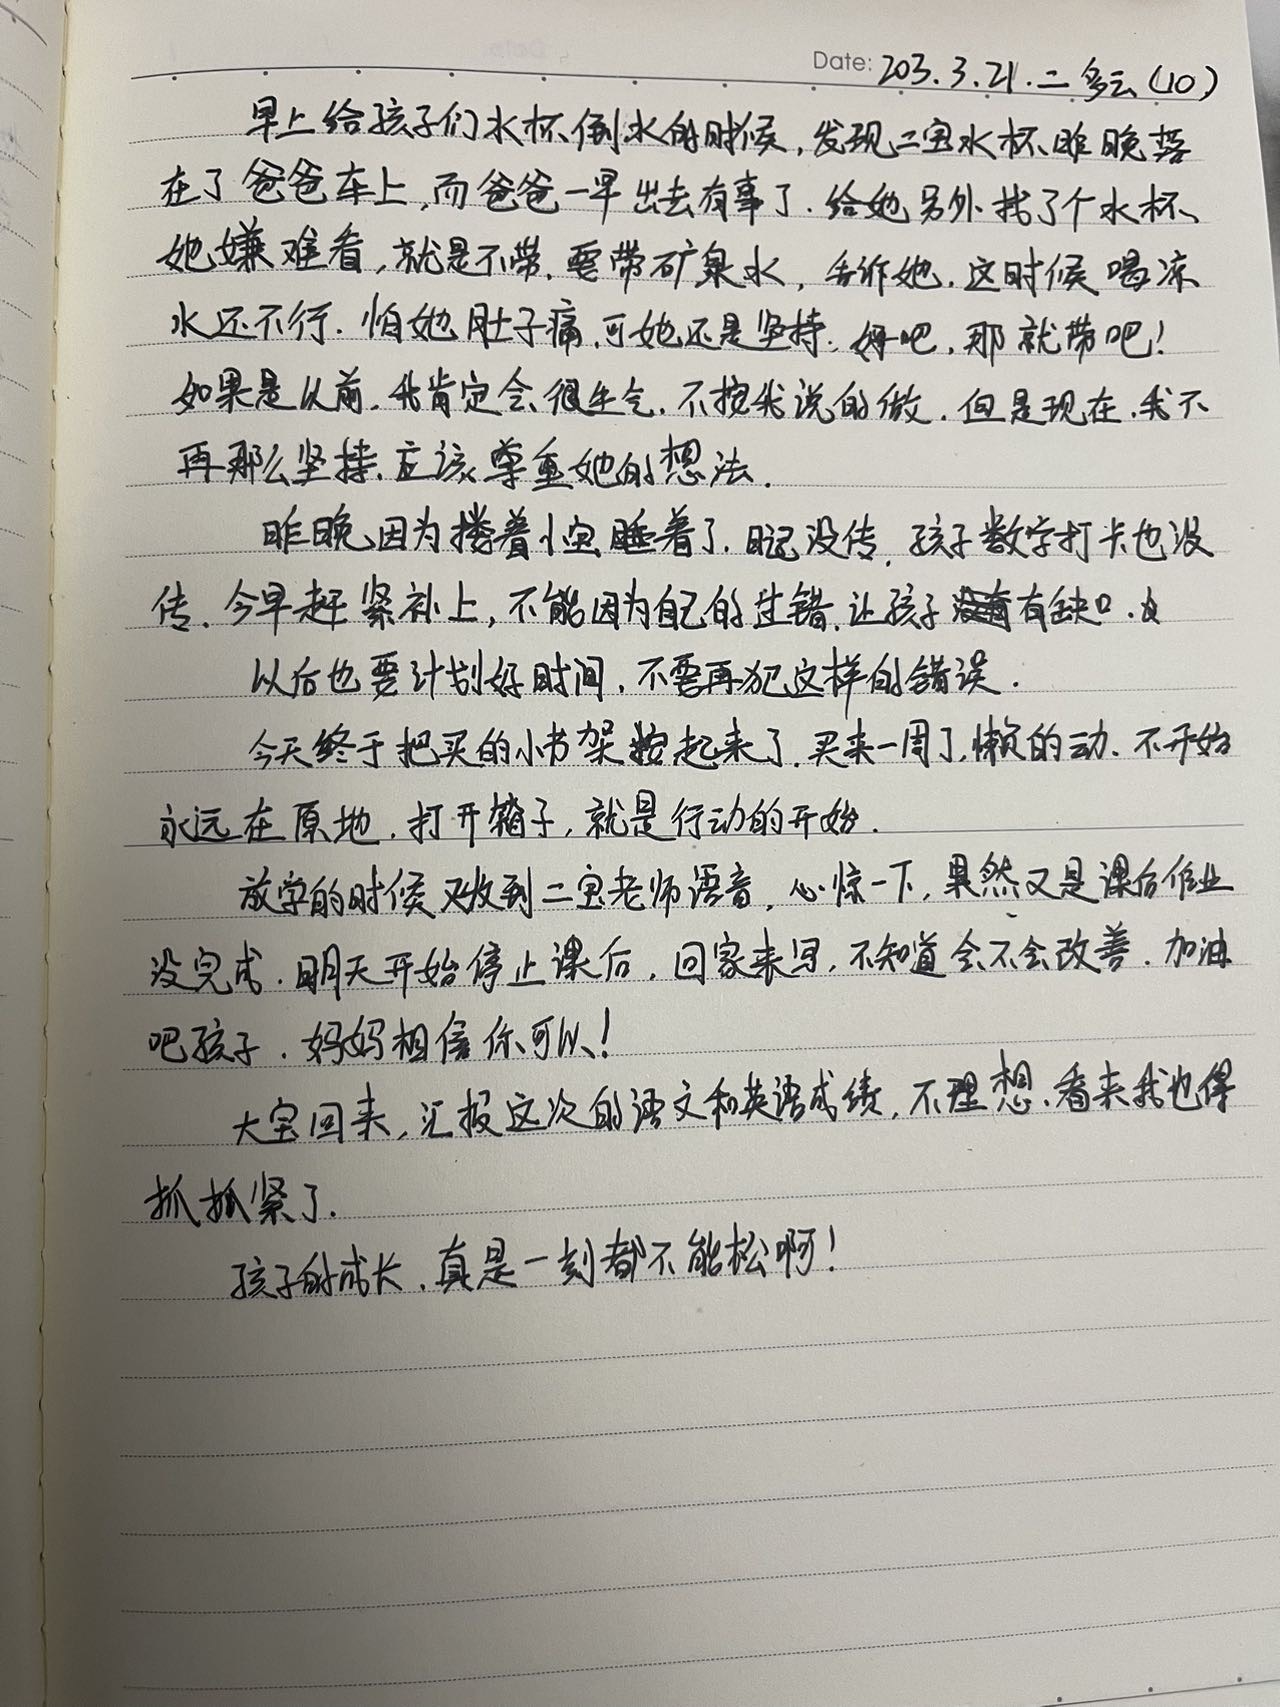 Date: 203.3.21.二 多云(10)
早上给孩子们水杯倒水的时候,发现二宝水杯昨晚落
在了爸爸车上,而爸爸一早出去有事了.给她另外找了个水杯、
她嫌难看,就是不带.要带矿泉水,告诉她.这时候喝凉
水还不行.怕她肚子痛.可她还是坚持.好吧,那就带吧!
如果是以前.我肯定会很生气.不按我说的做.但是现在.我不
再那么坚持.应该尊重她的想法.
昨晚因为搂着小宝睡着了.日记没传.孩子数学打卡也没
传.今早赶紧补上,不能因为自己的过错.让孩子有缺口.
以后也要计划好时间,不要再犯这样的错误.
今天终于把买的小书架按起来了.买来一周了,懒的动.不开始
永远在原地.打开箱子,就是行动的开始.
放学的时候又收到二宝老师语音,心惊一下,果然又是课后作业
没完成.明天开始停止课后.回家来写,不知道会不会改善.加油
吧孩子.妈妈相信你可以!
大宝回来,汇报这次的语文和英语成绩,不理想.看来我也得
抓抓紧了.
孩子的成长.真是一刻都不能松啊!